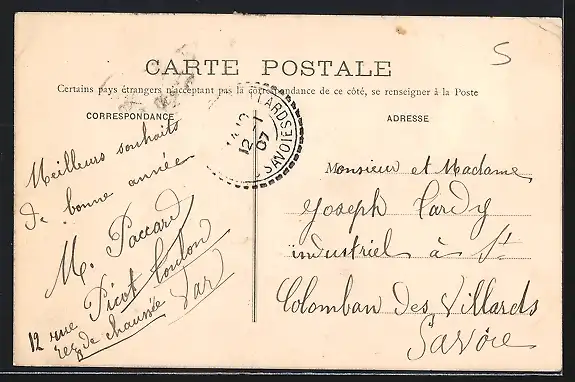 CARTE POSTALE
Certains pays étrangers n'acceptant pas la correspondance de ce côté, se renseigner à la Poste
CORRESPONDANCE
ADRESSE
Meilleurs souhaits
de bonne année
M. Paccard
12 rue Picot Toulon
rez de chaussée Var
LLARDS
12
-1
07
SAVOIE
Monsieur et Madame
Joseph Tardy
industriel à St
Colomban des Villards
Savoie
5